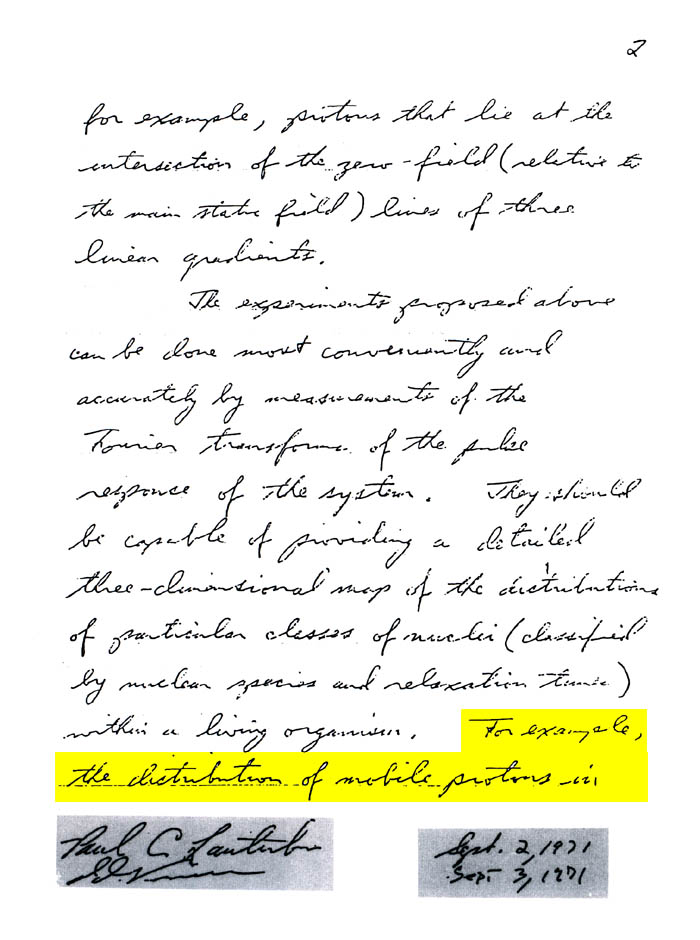 2
for example, protons that lie at the
intersection of the zero-field (relative to
the main static field) lines of three
linear gradients.
The experiments proposed above
can be done most conveniently and
accurately by measurements of the
Fourier transform of the pulse
response of the system. They should
be capable of providing a detailed
three-dimensional map of the distributions
of particular classes of nuclei (classified
by nuclear species and relaxation times)
within a living organism. For example,
the distribution of mobile protons in
Paul C. Lauterbur
Sept. 2, 1971
Sept 3, 1971